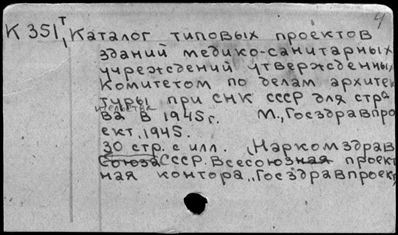 4
К 351 т, Каталог типовых проектов
зданий медико-санитарных
учреждений утвержденны
Комитетом по делам архите
туры при СНК СССР для стра
ва в 1945 г. М., Госздравпро
ект, 1945.
30 стр. с илл. (Наркомздрав
Союза СССР. Всесоюзная проект
ная контора "Госздравпроект